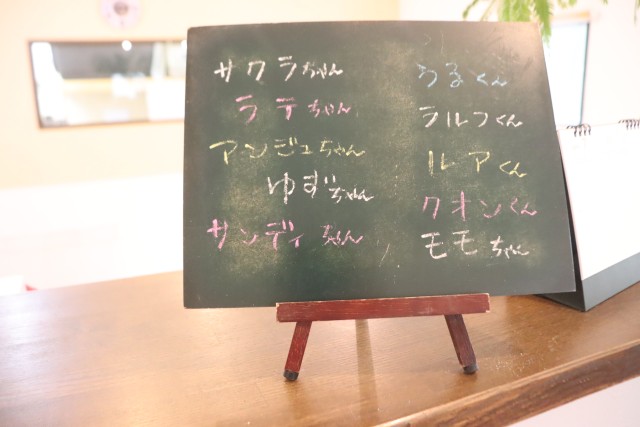 サクラちゃん
ラテちゃん
アンジュちゃん
ゆずちゃん
サンディちゃん
うるくん
ラルフくん
ルアくん
クオンくん
モモちゃん